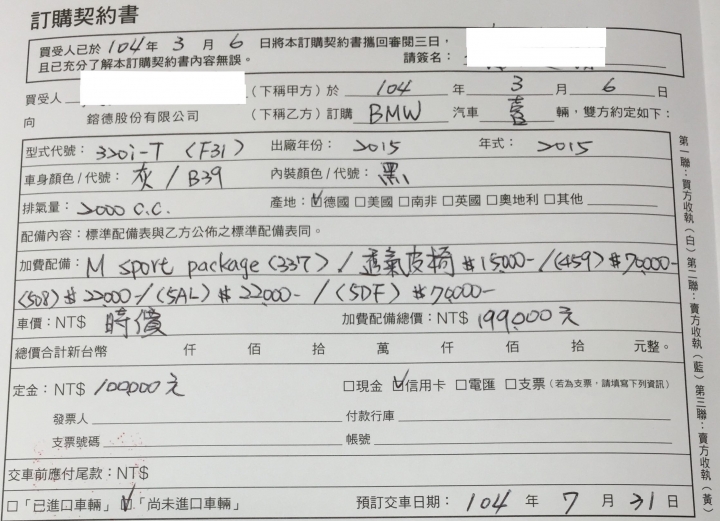 訂購契約書
買受人已於 104 年 3 月 6 日將本訂購契約書攜回審閱三日，
且已充分了解本訂購契約書內容無誤。 請簽名：
買受人 （下稱甲方）於 104 年 3 月 6 日
向 鎔德股份有限公司 （下稱乙方）訂購 BMW 汽車 壹 輛，雙方約定如下：
型式代號：320i-T (F31) 出廠年份：2015 年式：2015
車身顏色/代號：灰 / B39 內裝顏色/代號：黑
排氣量：2000 c.c. 產地：☑德國 □美國 □南非 □英國 □奧地利 □其他
配備內容：標準配備表與乙方公佈之標準配備表同。
加費配備：M sport package (337) / 透氣皮椅 $15,000- / (459) $70,000-
(508) $22,000- / (5AL) $22,000- / (5DF) $70,000-
車價：NT$ 時價 加費配備總價：NT$ 199,000元
總價合計新台幣 仟 佰 拾 萬 仟 佰 拾 元整。
定金：NT$ 100,000元 □現金 ☑信用卡 □電匯 □支票（若為支票，請填寫下列資訊）
發票人 付款行庫
支票號碼 帳號
交車前應付尾款：NT$
□「已進口車輛」 ☑「尚未進口車輛」 預訂交車日期：104 年 7 月 31 日
第一聯：買方收執（白）第二聯：賣方收執（藍）第三聯：賣方收執（黃）